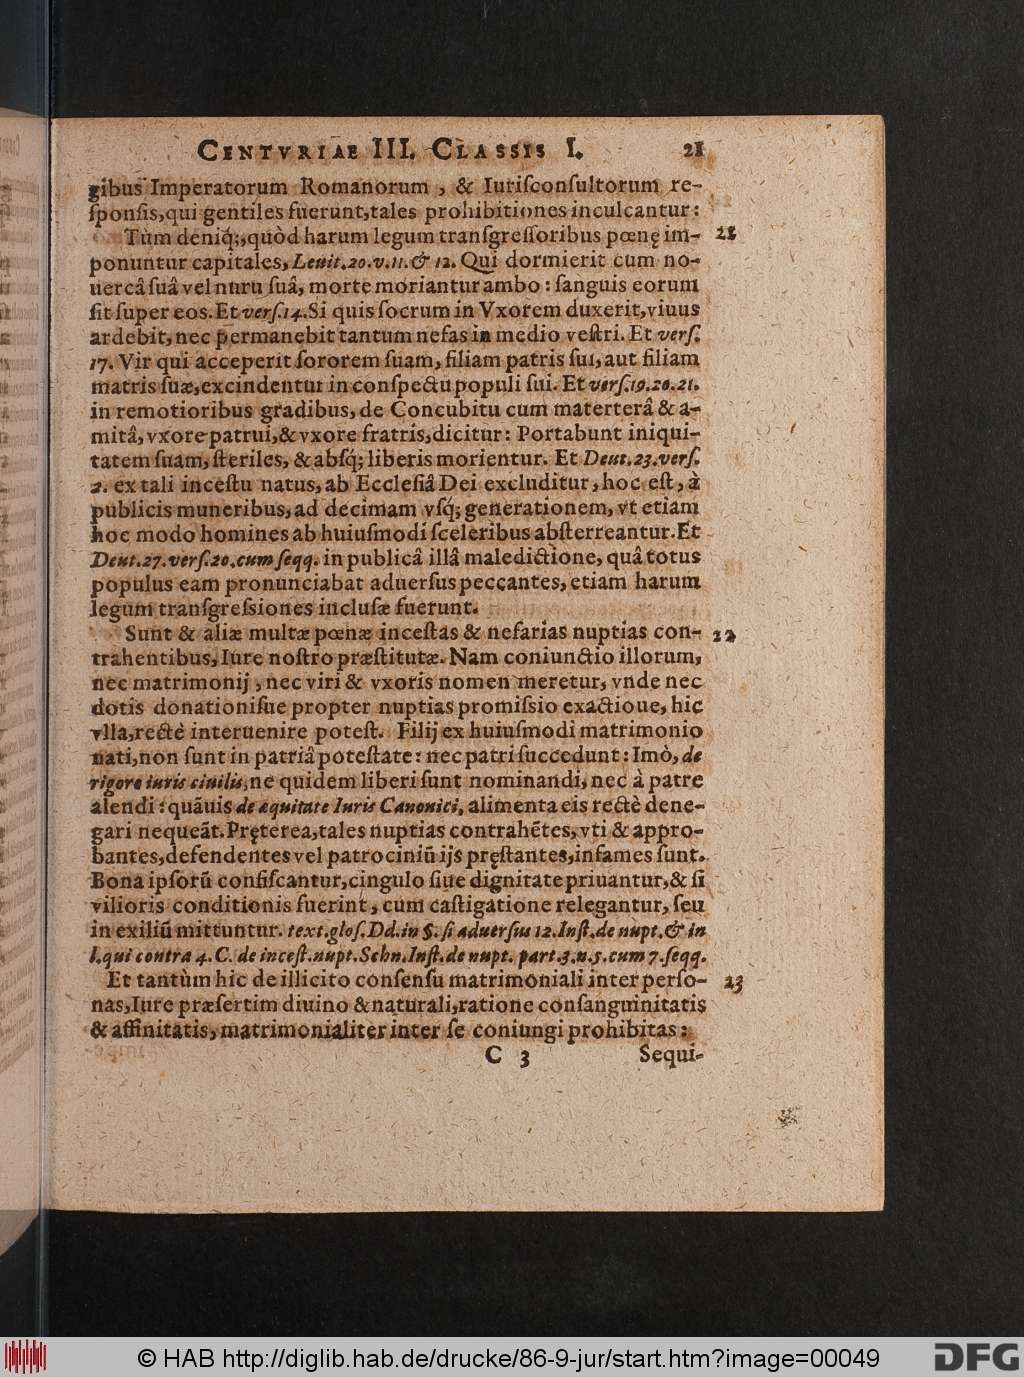 CENTVRIAE III. CLASSIS I. 21
gibus Imperatorum Romanorum, & Iuriſconſultorum re-
ſponſis, qui gentiles fuerunt, tales prohibitiones inculcantur:
Tùm deniq́;, quòd harum legum tranſgreſſoribus pœnę im- 21
ponuntur capitales, Leuit. 20. v. 11. & 12. Qui dormierit cum no-
uercâ ſuâ vel nuru ſuâ, morte moriantur ambo: ſanguis eorum
ſit ſuper eos. Et verſ. 14. Si quis ſocrum in Vxorem duxerit, viuus
ardebit, nec permanebit tantum nefas in medio veſtri. Et verſ.
17. Vir qui acceperit ſororem ſuam, filiam patris ſui, aut filiam
matris ſuæ, excindentur in conſpectu populi ſui. Et verſ. 19. 20. 21.
in remotioribus gradibus, de Concubitu cum materterâ & a-
mitâ, vxore patrui, & vxore fratris, dicitur: Portabunt iniqui-
tatem ſuam, ſteriles, & abſq́; liberis morientur. Et Deut. 23. verſ.
2. ex tali inceſtu natus, ab Eccleſiâ Dei excluditur, hoc eſt, à
publicis muneribus, ad decimam vſq́; generationem, vt etiam
hoc modo homines ab huiuſmodi ſceleribus abſterreantur. Et
Deut. 27. verſ. 20. cum ſeqq. in publicâ illâ maledictione, quâ totus
populus eam pronunciabat aduerſus peccantes, etiam harum
legum tranſgreſsiones incluſæ fuerunt.
Sunt & aliæ multæ pœnæ inceſtas & nefarias nuptias con- 22
trahentibus, Iure noſtro præſtitutæ. Nam coniunctio illorum,
nec matrimonij, nec viri & vxoris nomen meretur, vnde nec
dotis donationiſue propter nuptias promiſsio exactioue, hic
vlla, rectè interuenire poteſt. Filij ex huiuſmodi matrimonio
nati, non ſunt in patriâ poteſtate: nec patri ſuccedunt: Imò, de
rigore iuris ciuilis, ne quidem liberi ſunt nominandi, nec à patre
alendi: quãuis de æquitate Iuris Canonici, alimenta eis rectè dene-
gari nequeāt. Pręterea, tales nuptias contrahētes, vti & appro-
bantes, defendentes vel patrociniū ijs pręſtantes, infames ſunt.
Bona ipſorū confiſcantur, cingulo ſiue dignitate priuantur, & ſi
vilioris conditionis fuerint, cum caſtigatione relegantur, ſeu
in exiliū mittuntur. text. gloſ. Dd. in §. ſi aduerſus 12. Inſt. de nupt. & in
l. qui contra 4. C. de inceſt. nupt. Schn. Inſt. de nupt. part. 3. n. 5. cum 7. ſeqq.
Et tantùm hic de illicito conſenſu matrimoniali inter perſo- 23
nas, Iure præſertim diuino & naturali, ratione conſanguinitatis
& affinitatis, matrimonialiter inter ſe coniungi prohibitas:
C 3 Sequi-
© HAB http://diglib.hab.de/drucke/86-9-jur/start.htm?image=00049 DFG